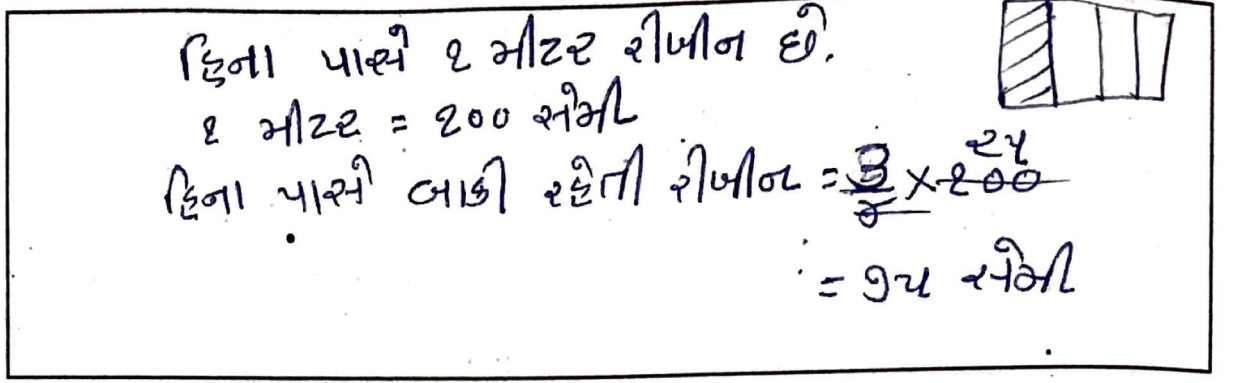 હિના પાસે ૧ મીટર રીબીન છે.
૧ મીટર = ૧૦૦ સેમી
હિના પાસે બાકી રહેતી રીબીન = ૩/૪ × ૧૦૦ ૨૫
= ૭૫ સેમી